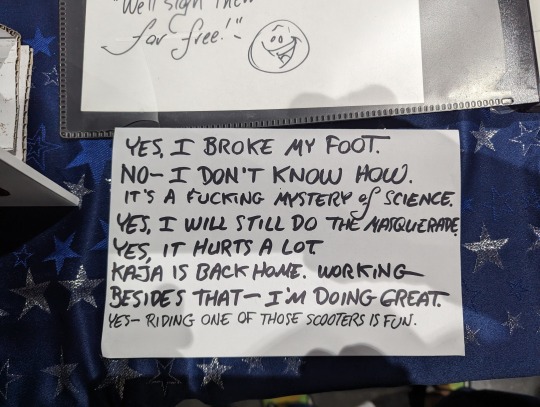 "We'll sign them
for free!"-
YES, I BROKE MY FOOT.
NO- I DON'T KNOW HOW.
IT'S A FUCKING MYSTERY of SCIENCE.
YES, I WILL STILL DO THE MASQUERADE.
YES, IT HURTS A LOT.
KAJA IS BACK HOME. WORKING-
BESIDES THAT- I'M DOING GREAT.
YES- RIDING ONE OF THOSE SCOOTERS IS FUN.